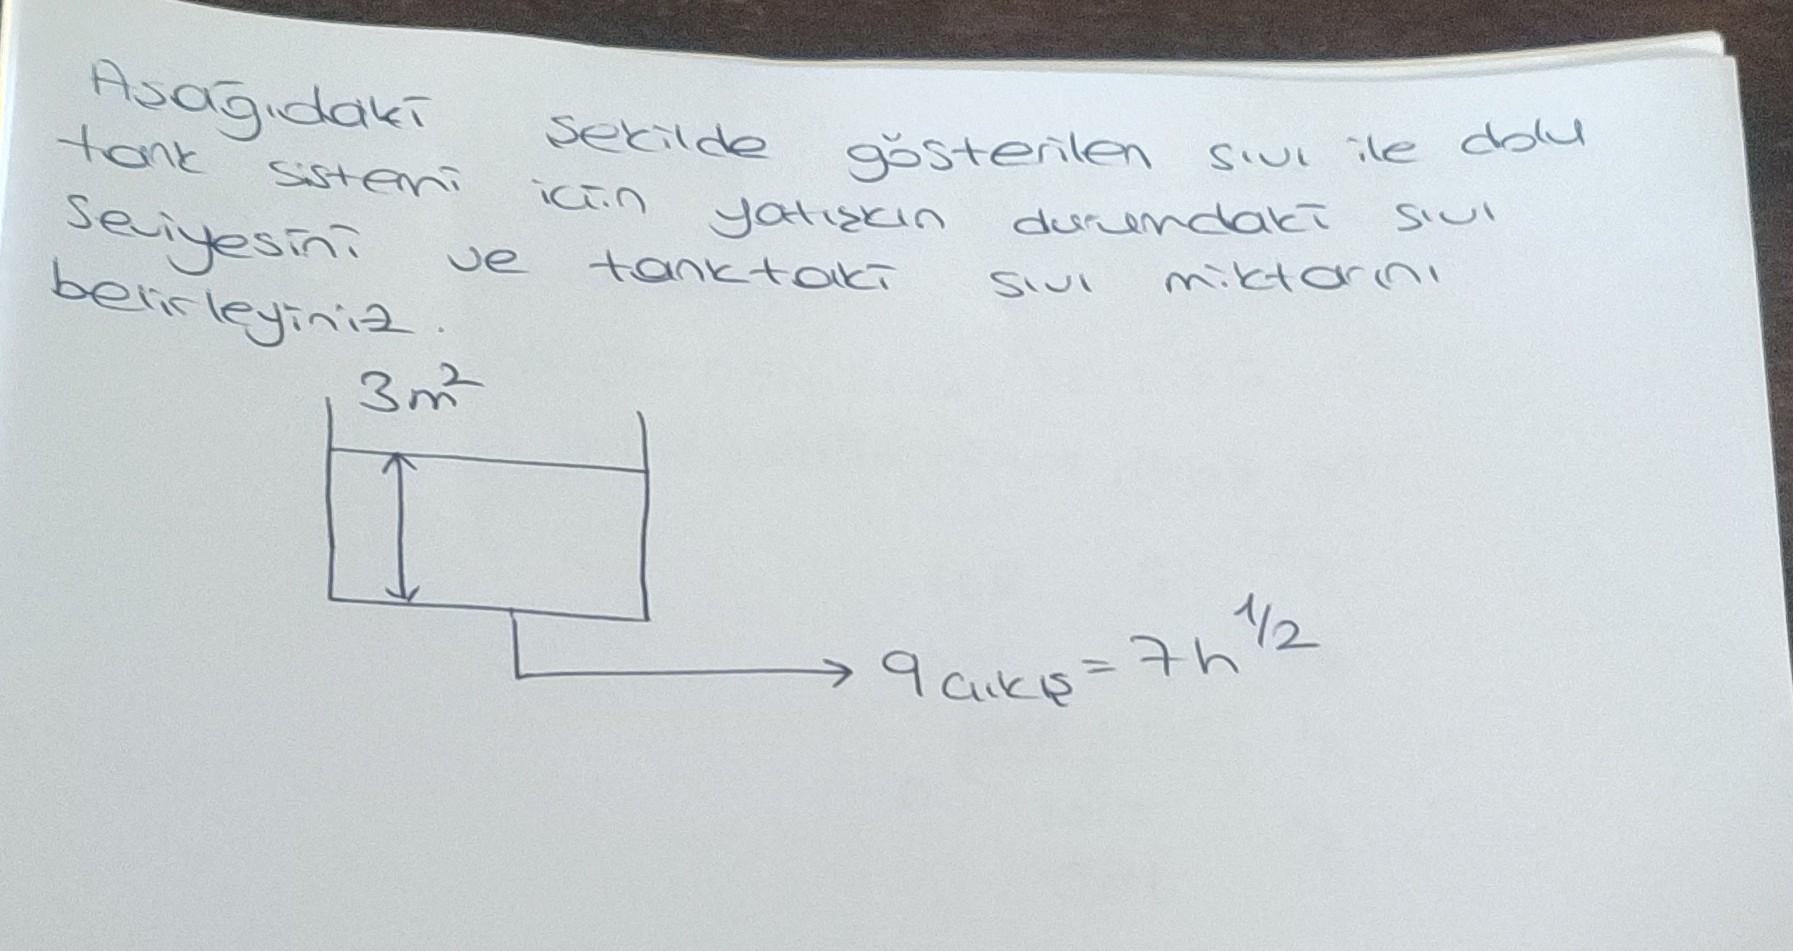 Aşağıdaki şekilde gösterilen sıvı ile dolu
tank sistemi için yatışkın durumdaki sıvı
seviyesini ve tanktaki sıvı miktarını
belirleyiniz.
3m²
q çıkış = 7h^1/2